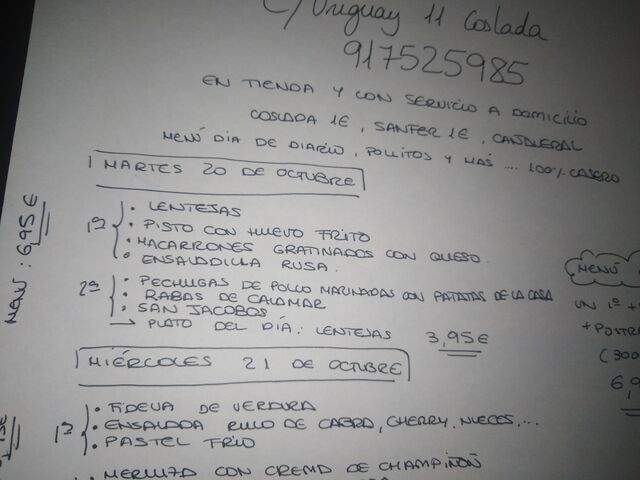 C/ Uruguay 11 Coslada
917525985
EN TIENDA Y CON SERVICIO A DOMICILIO
COSLADA 1€, SANFER 1€, CANDLERAL
MENÚ DÍA DE DIARIO, POLLITOS Y MAS .... 100% CASERO
MARTES 20 DE OCTUBRE
MENÚ: 6,95€
1º
• LENTEJAS
• PISTO CON HUEVO FRITO
• MACARRONES GRATINADOS CON QUESO.
• ENSALADILLA RUSA.
2º
• PECHUGAS DE POLLO MARINADAS CON PATATAS DE LA CASA
• RABAS DE CALAMAR
• SAN JACOBOS
→ PLATO DEL DÍA: LENTEJAS 3,95€
MENÚ
UN 1º +
+ POSTR
(300
6,9
MIÉRCOLES 21 DE OCTUBRE
1º
• FIDEUA DE VERDURA
• ENSALADA RULO DE CABRA, CHERRY, NUECES,...
• PASTEL FRIO
• MERLUZA CON CREMA DE CHAMPIÑON